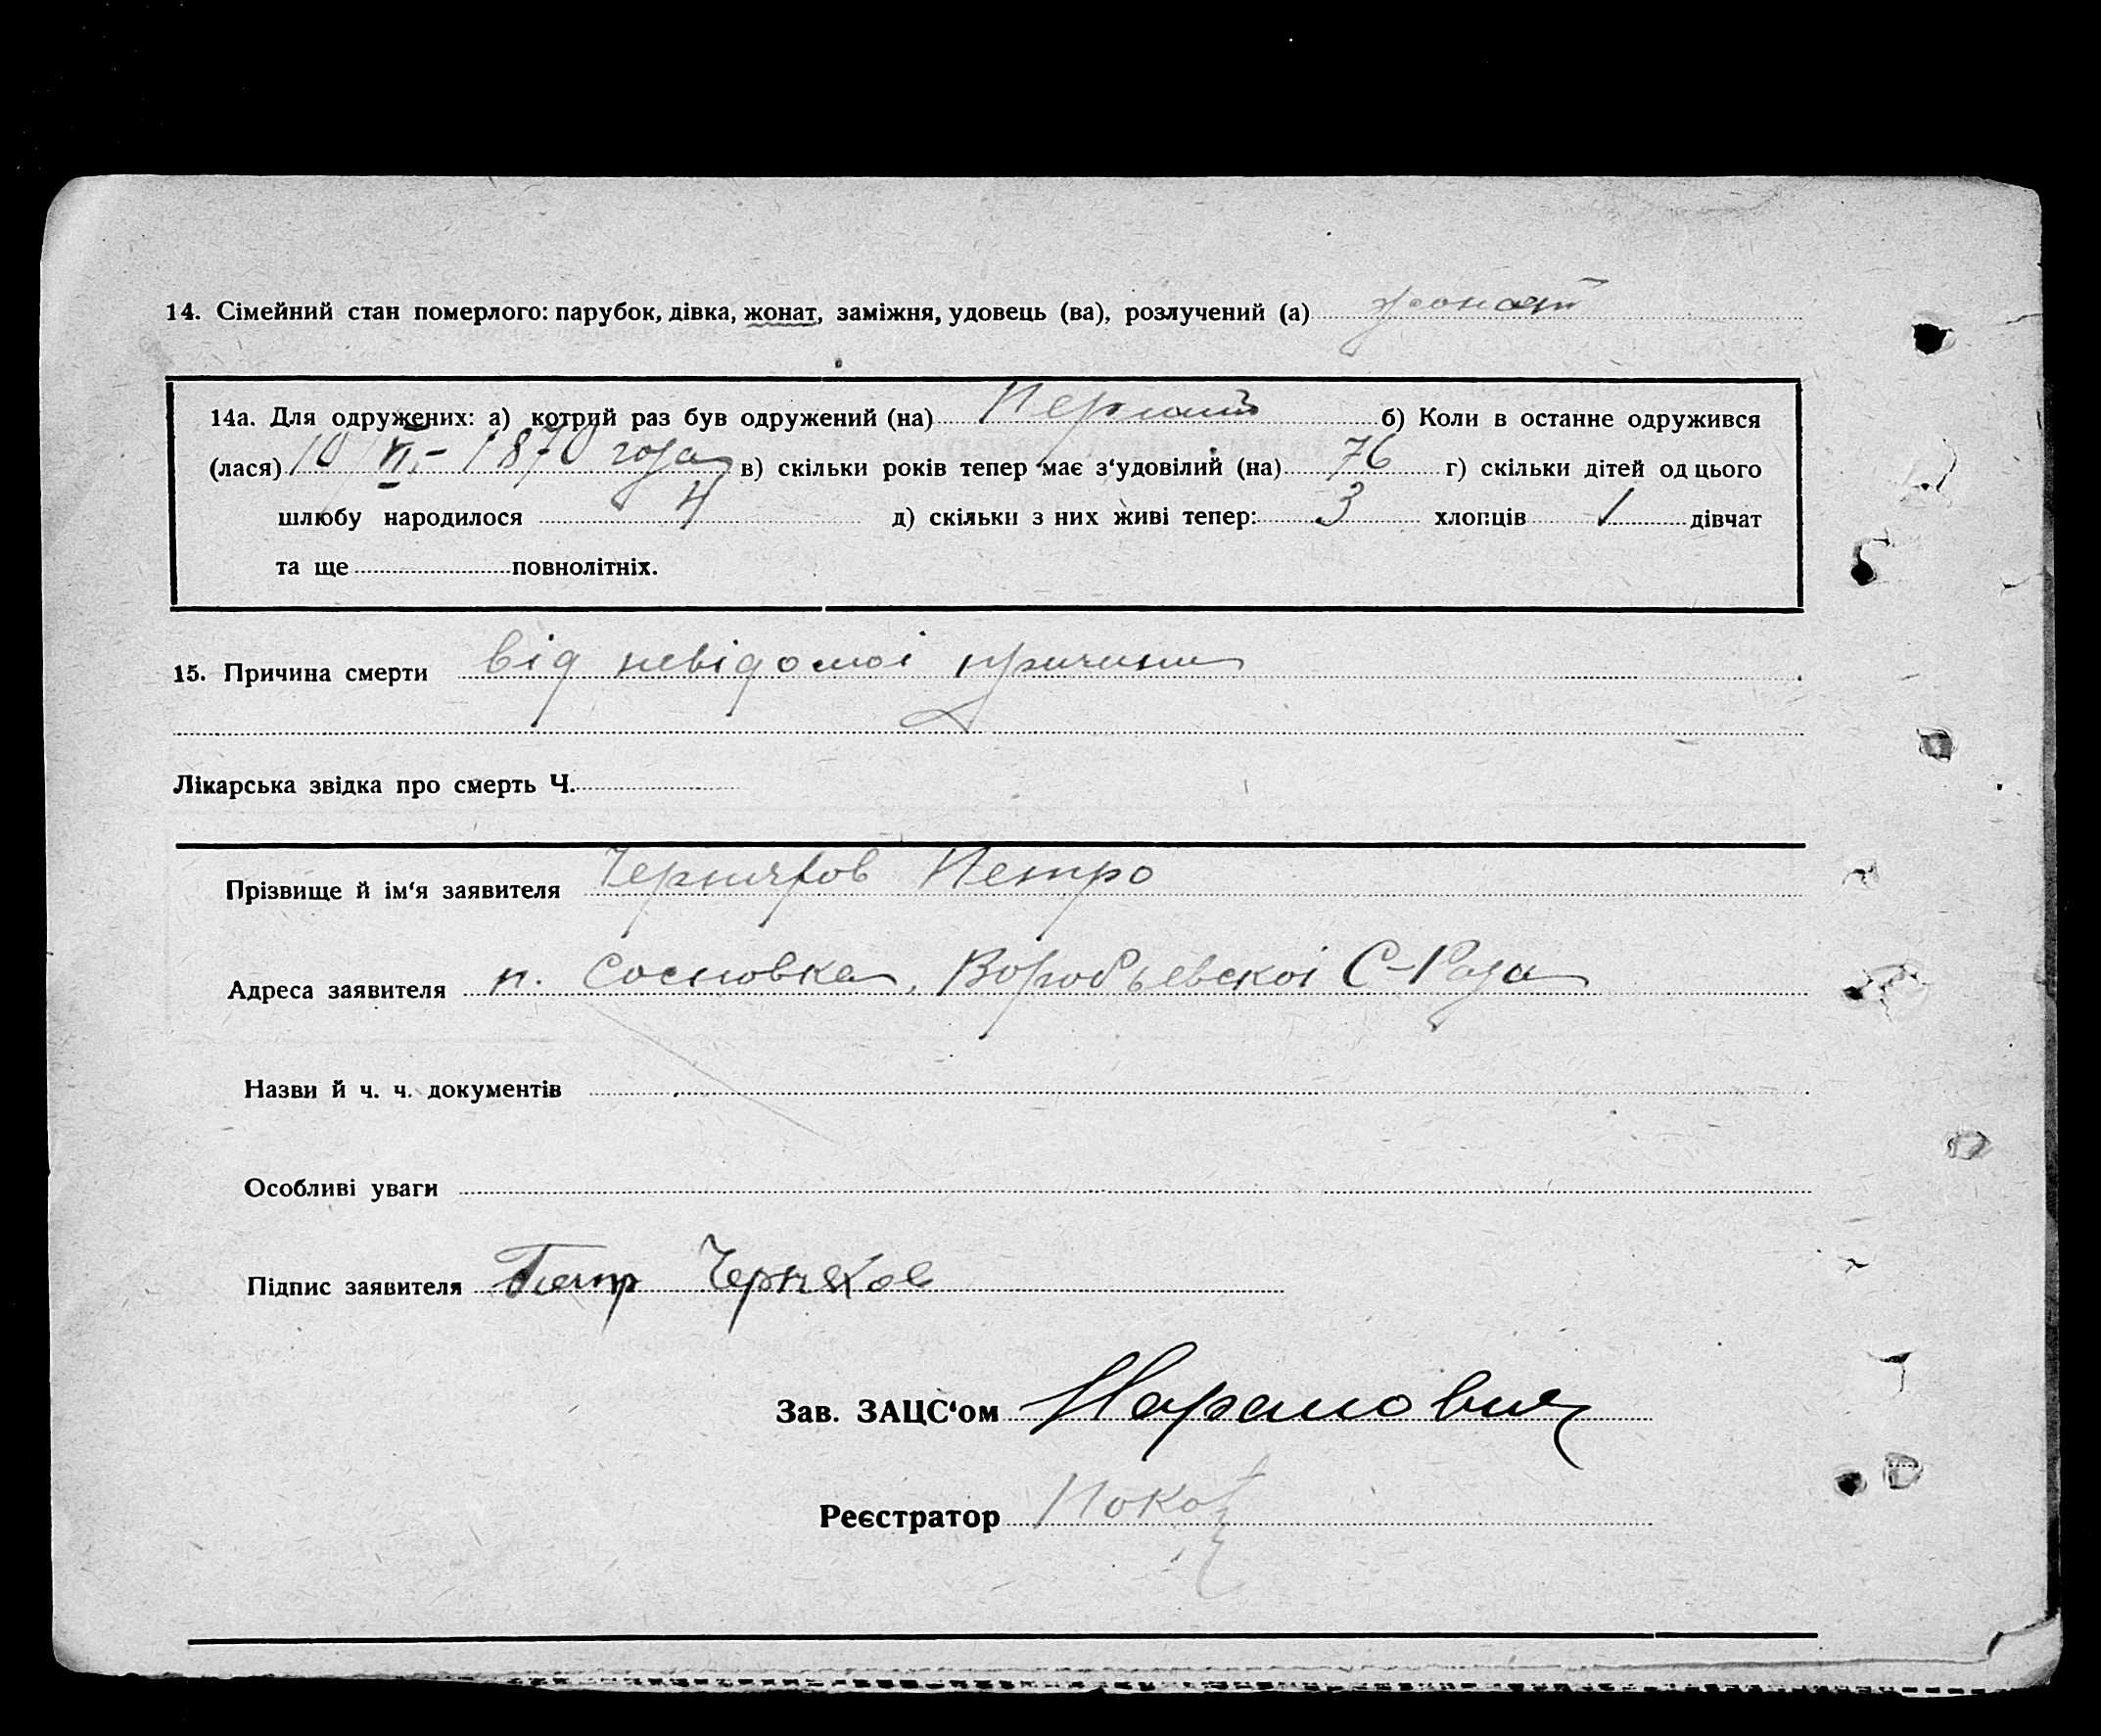 14. Сімейний стан померлого: парубок, дівка, жонат, заміжня, удовець (ва), розлучений (а) жонат
14а. Для одружених: а) котрий раз був одружений (на) Перший б) Коли в останне одружився
(лася) 10 VI - 1870 года в) скільки років тепер має з‘удовілий (на) 76 г) скільки дітей од цього
шлюбу народилося 4 д) скільки з них живі тепер: 3 хлопців 1 дівчат
та ще повнолітніх.
15. Причина смерти від невідомоі причини
Лікарська звідка про смерть Ч.
Прізвище й ім‘я заявителя Черняков Петро
Адреса заявителя п. Сосновка, Воробьевскоі С-Рада
Назви й ч. ч. документів
Особливі уваги
Підпис заявителя Петр Черняков
Зав. ЗАЦС‘ом
Реєстратор